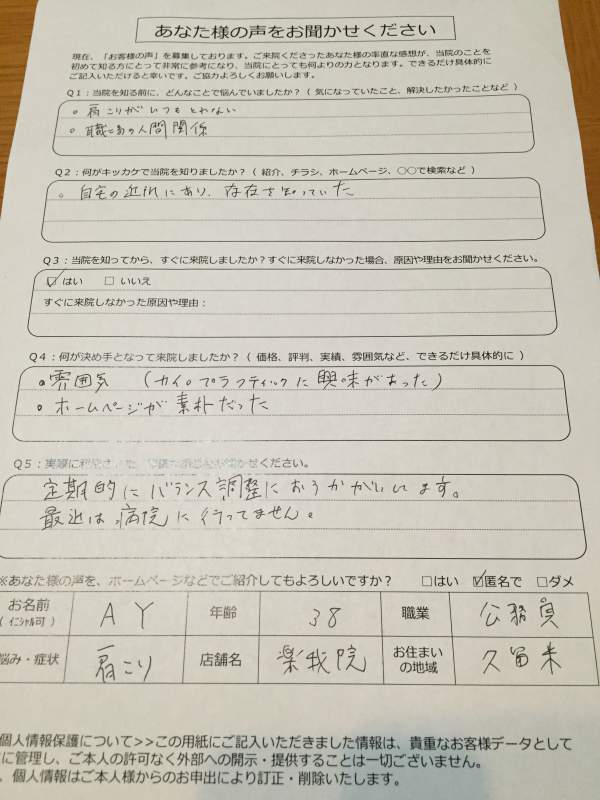 あなた様の声をお聞かせください
現在、「お客様の声」を募集しております。ご来院くださったあなた様の率直な感想が、当院のことを
初めて知る方にとって非常に参考になり、当院にとっても何よりの力となります。できるだけ具体的に
ご記入いただけると幸いです。ご協力よろしくお願いします。
Q1：当院を知る前に、どんなことで悩んでいましたか？（ 気になっていたこと、解決したかったことなど ）
。肩こりがいつもとれない
。職場の人間関係
Q2：何がキッカケで当院を知りましたか？（ 紹介、チラシ、ホームページ、○○で検索など ）
。自宅の近所にあり、存在を知っていた
Q3：当院を知ってから、すぐに来院しましたか？すぐに来院しなかった場合、原因や理由をお聞かせください。
☑はい □いいえ
すぐに来院しなかった原因や理由：
Q4：何が決め手となって来院しましたか？（ 価格、評判、実績、雰囲気など、できるだけ具体的に ）
。雰囲気 （カイロプラクティックに興味があった）
。ホームページが素朴だった
Q5：実際に かせください。
定期的にバランス調整におうかがいします。
最近は病院に行ってません。
※あなた様の声を、ホームページなどでご紹介してもよろしいですか？ □はい ☑匿名で □ダメ
お名前 （ｲﾆｼｬﾙ可） AY 年齢 38 職業 公務員
悩み・症状 肩こり 店舗名 楽我院 お住まいの地域 久留米
個人情報保護について>>この用紙にご記入いただきました情報は、貴重なお客様データとして
に管理し、ご本人の許可なく外部への開示・提供することは一切ございません。
、個人情報はご本人様からのお申出により訂正・削除いたします。